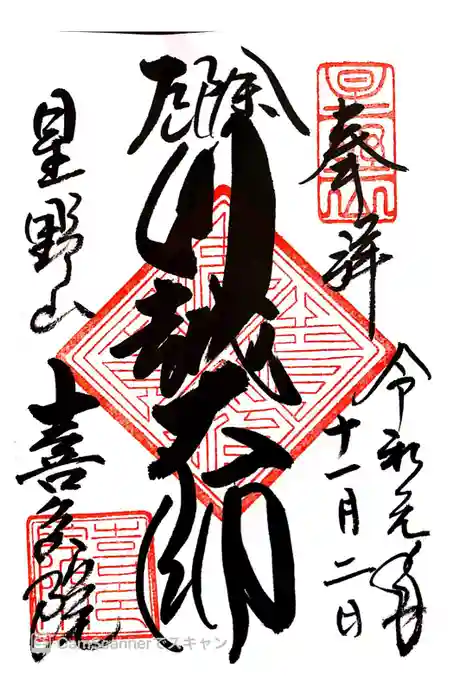 奉拝
令和元年
十一月二日
厄除
川越大師
星野山
喜多院
CamScannerでスキャン